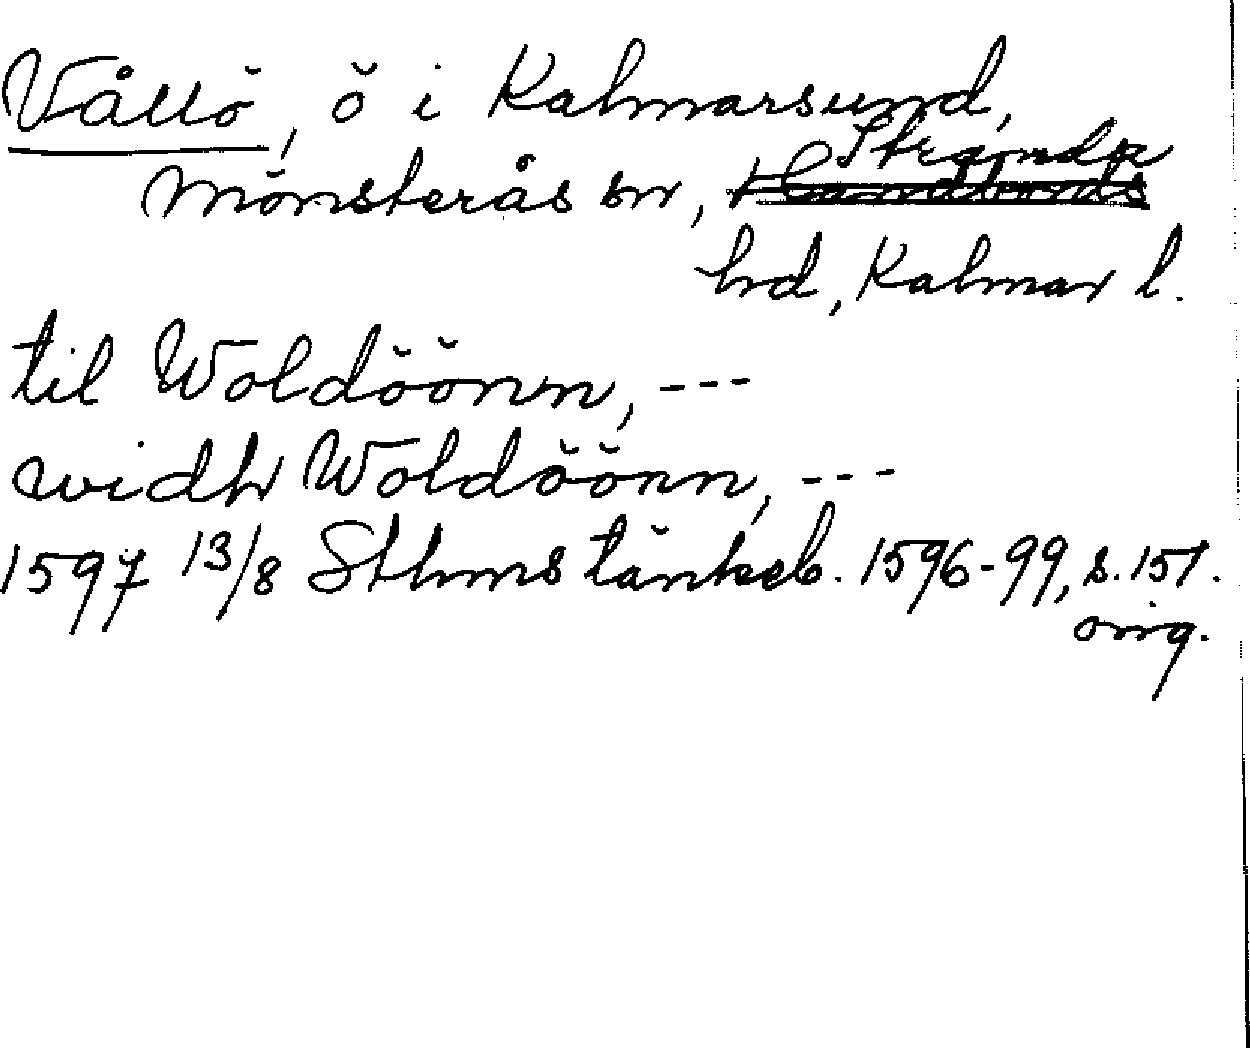 Vållö, ö i Kalmarsund,
Mönsterås sn, Stranda
hd, Kalmar l.
til Woldöönn, ---
widh Woldöönn, ---
1597 13/8 Sthms tänkeb. 1596-99, s. 157.
orig.